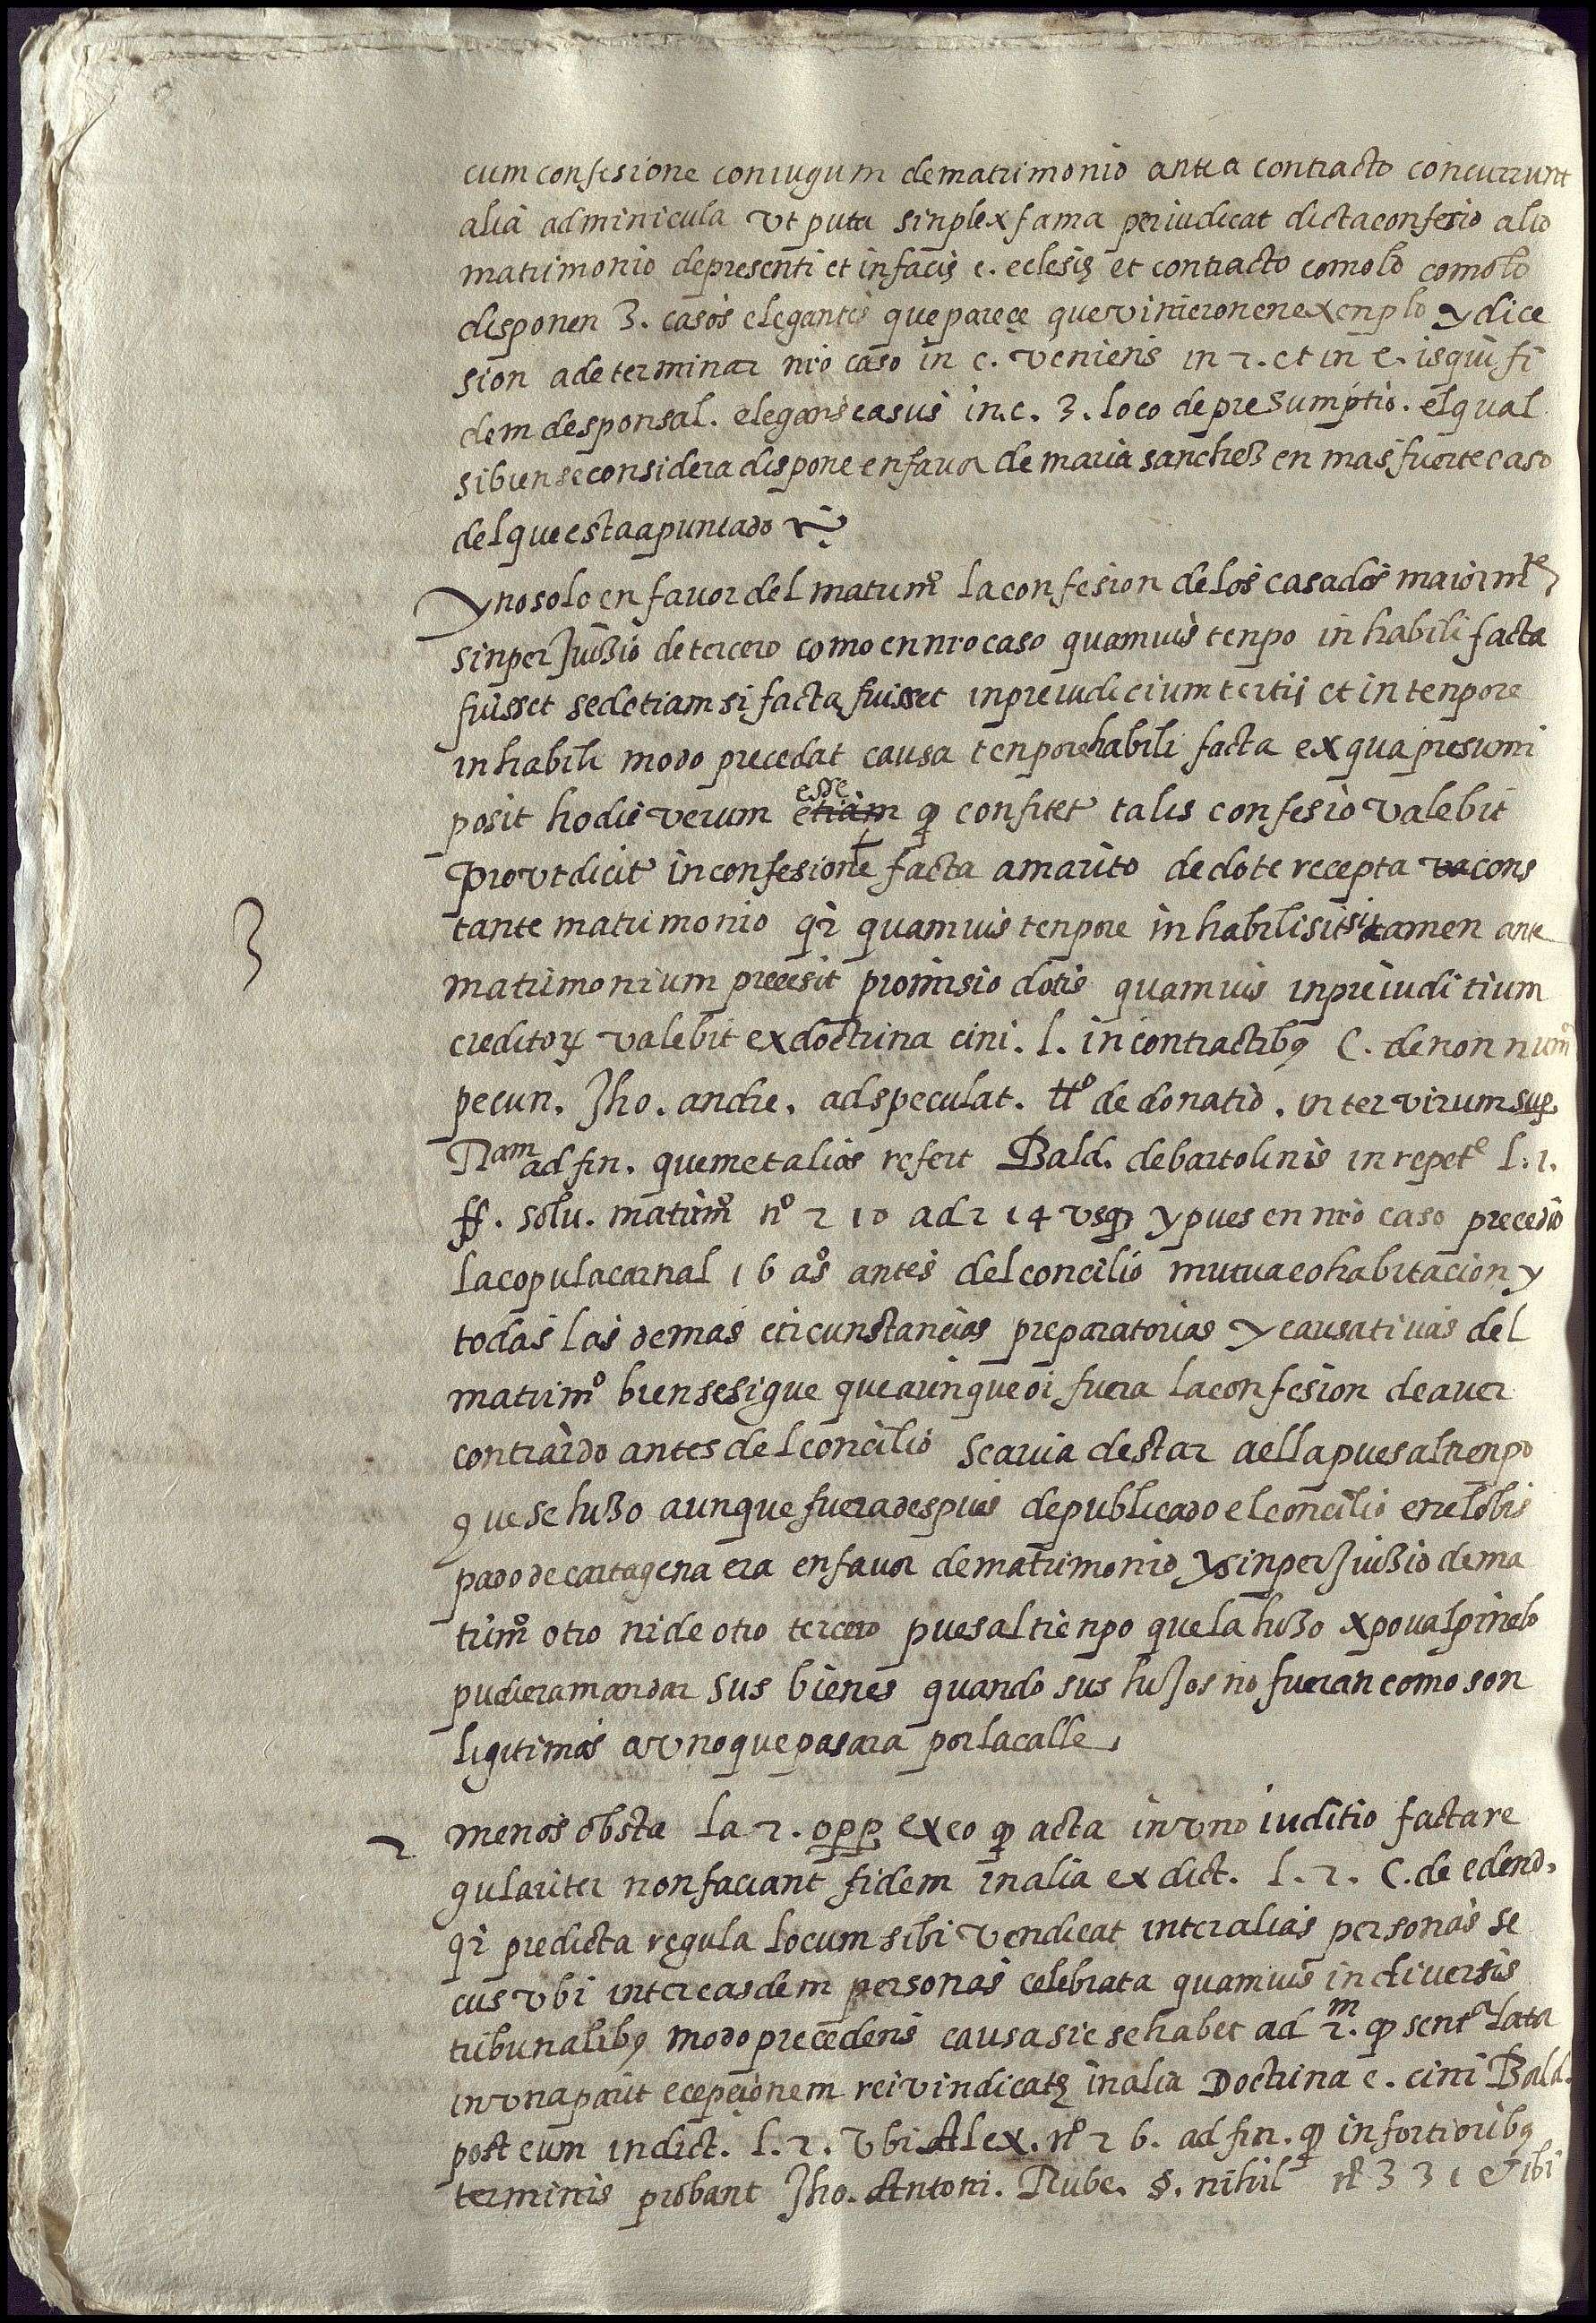 cum confesione coniugum de matrimonio antea contracto concurrunt
alia adminicula vt puta sinplex fama periudicat dicta confesio alio
matrimonio de presenti et in facis c. eclesię et contracto como lo como lo
disponen 3. casos elegantes que parece que vinieron en exenplo y dice
sion a determinar nro caso in c. veniens in 2. et in c. is qui fi
dem de sponsal. elegans casus in. c. 3. loco de presumptio. el qual
si bien se considera dispone en fauor de maria sancheß en mas fuerte caso
del que esta apuntado
y no solo en fauor del matrimº la confesion de los casados maiormte
sin perjuiȝio de tercero como en nro caso quamuis tenpo inhabili facta
fuisset sed etiam si facta fuisset in preiudicium tertii et in tenpore
inhabili modo precedat causa tenpore habili facta ex qua presumi
posit hodie verum esse etiam q confitet talis confesio valebit
prout dicit in confesione facta a marito de dote recepta va cons
3
tante matrimonio qi quamuis tenpore inhabili sit si tamen ante
matrimonium precesit promisio dotis quamuis in preiuditium
creditoꝝ valebit ex doctrina cini. l. in contractibꝯ C. de non num
pecun. Jho. andre. ad speculat. ttº de donatio. inter virum sup.
Nam ad fin. quem et alios refert Bald. de bartolinis in repete l. 1.
ff. solu. matrimº nº 210 ad 214 vsq y pues en nro caso precedio
la copula carnal 16 aºs antes del concilio mutua cohabitacion y
todas las demas circunstancias preparatorias y causatiuas del
matrimº bien se sigue que aunque oi fuera la confesion de auer
contraido antes del concilio se auia destar a ella pues al tienpo
que se hiȝo aunque fuera despues de publicado el concilio en el obis
pado de cartagena era en fauor de matrimonio y sin perjuiȝio de ma
trimº otro ni de otro tercero pues al tienpo que la hiȝo xpoual pinelo
pudiera mandar sus bienes quando sus hijos no fueran como son
ligitimos a vno que pasara por la calle,
2 menos obsta la 2. opp ex eo q acta in vno iuditio facta re
gulariter non faciant fidem in alia ex dict. l. 2. C. de edend.
qi predicta regula locum sibi vendicat inter alias personas se
cus vbi inter easdem personas celebrata quamuis in diuersis
tribunalibꝯ modo precedens causa sic se habet ad 2.m q sent.a lata
in vna parit ecepcionem rei vindicatę in alia Doctrina e. cini Bald.
post eum in dict. l. 2. Vbi Alex. nº 26. ad fin. q in fortioribꝯ
terminis probant Jho. Antoni. Rube. §. nihil nº 331 et ibi